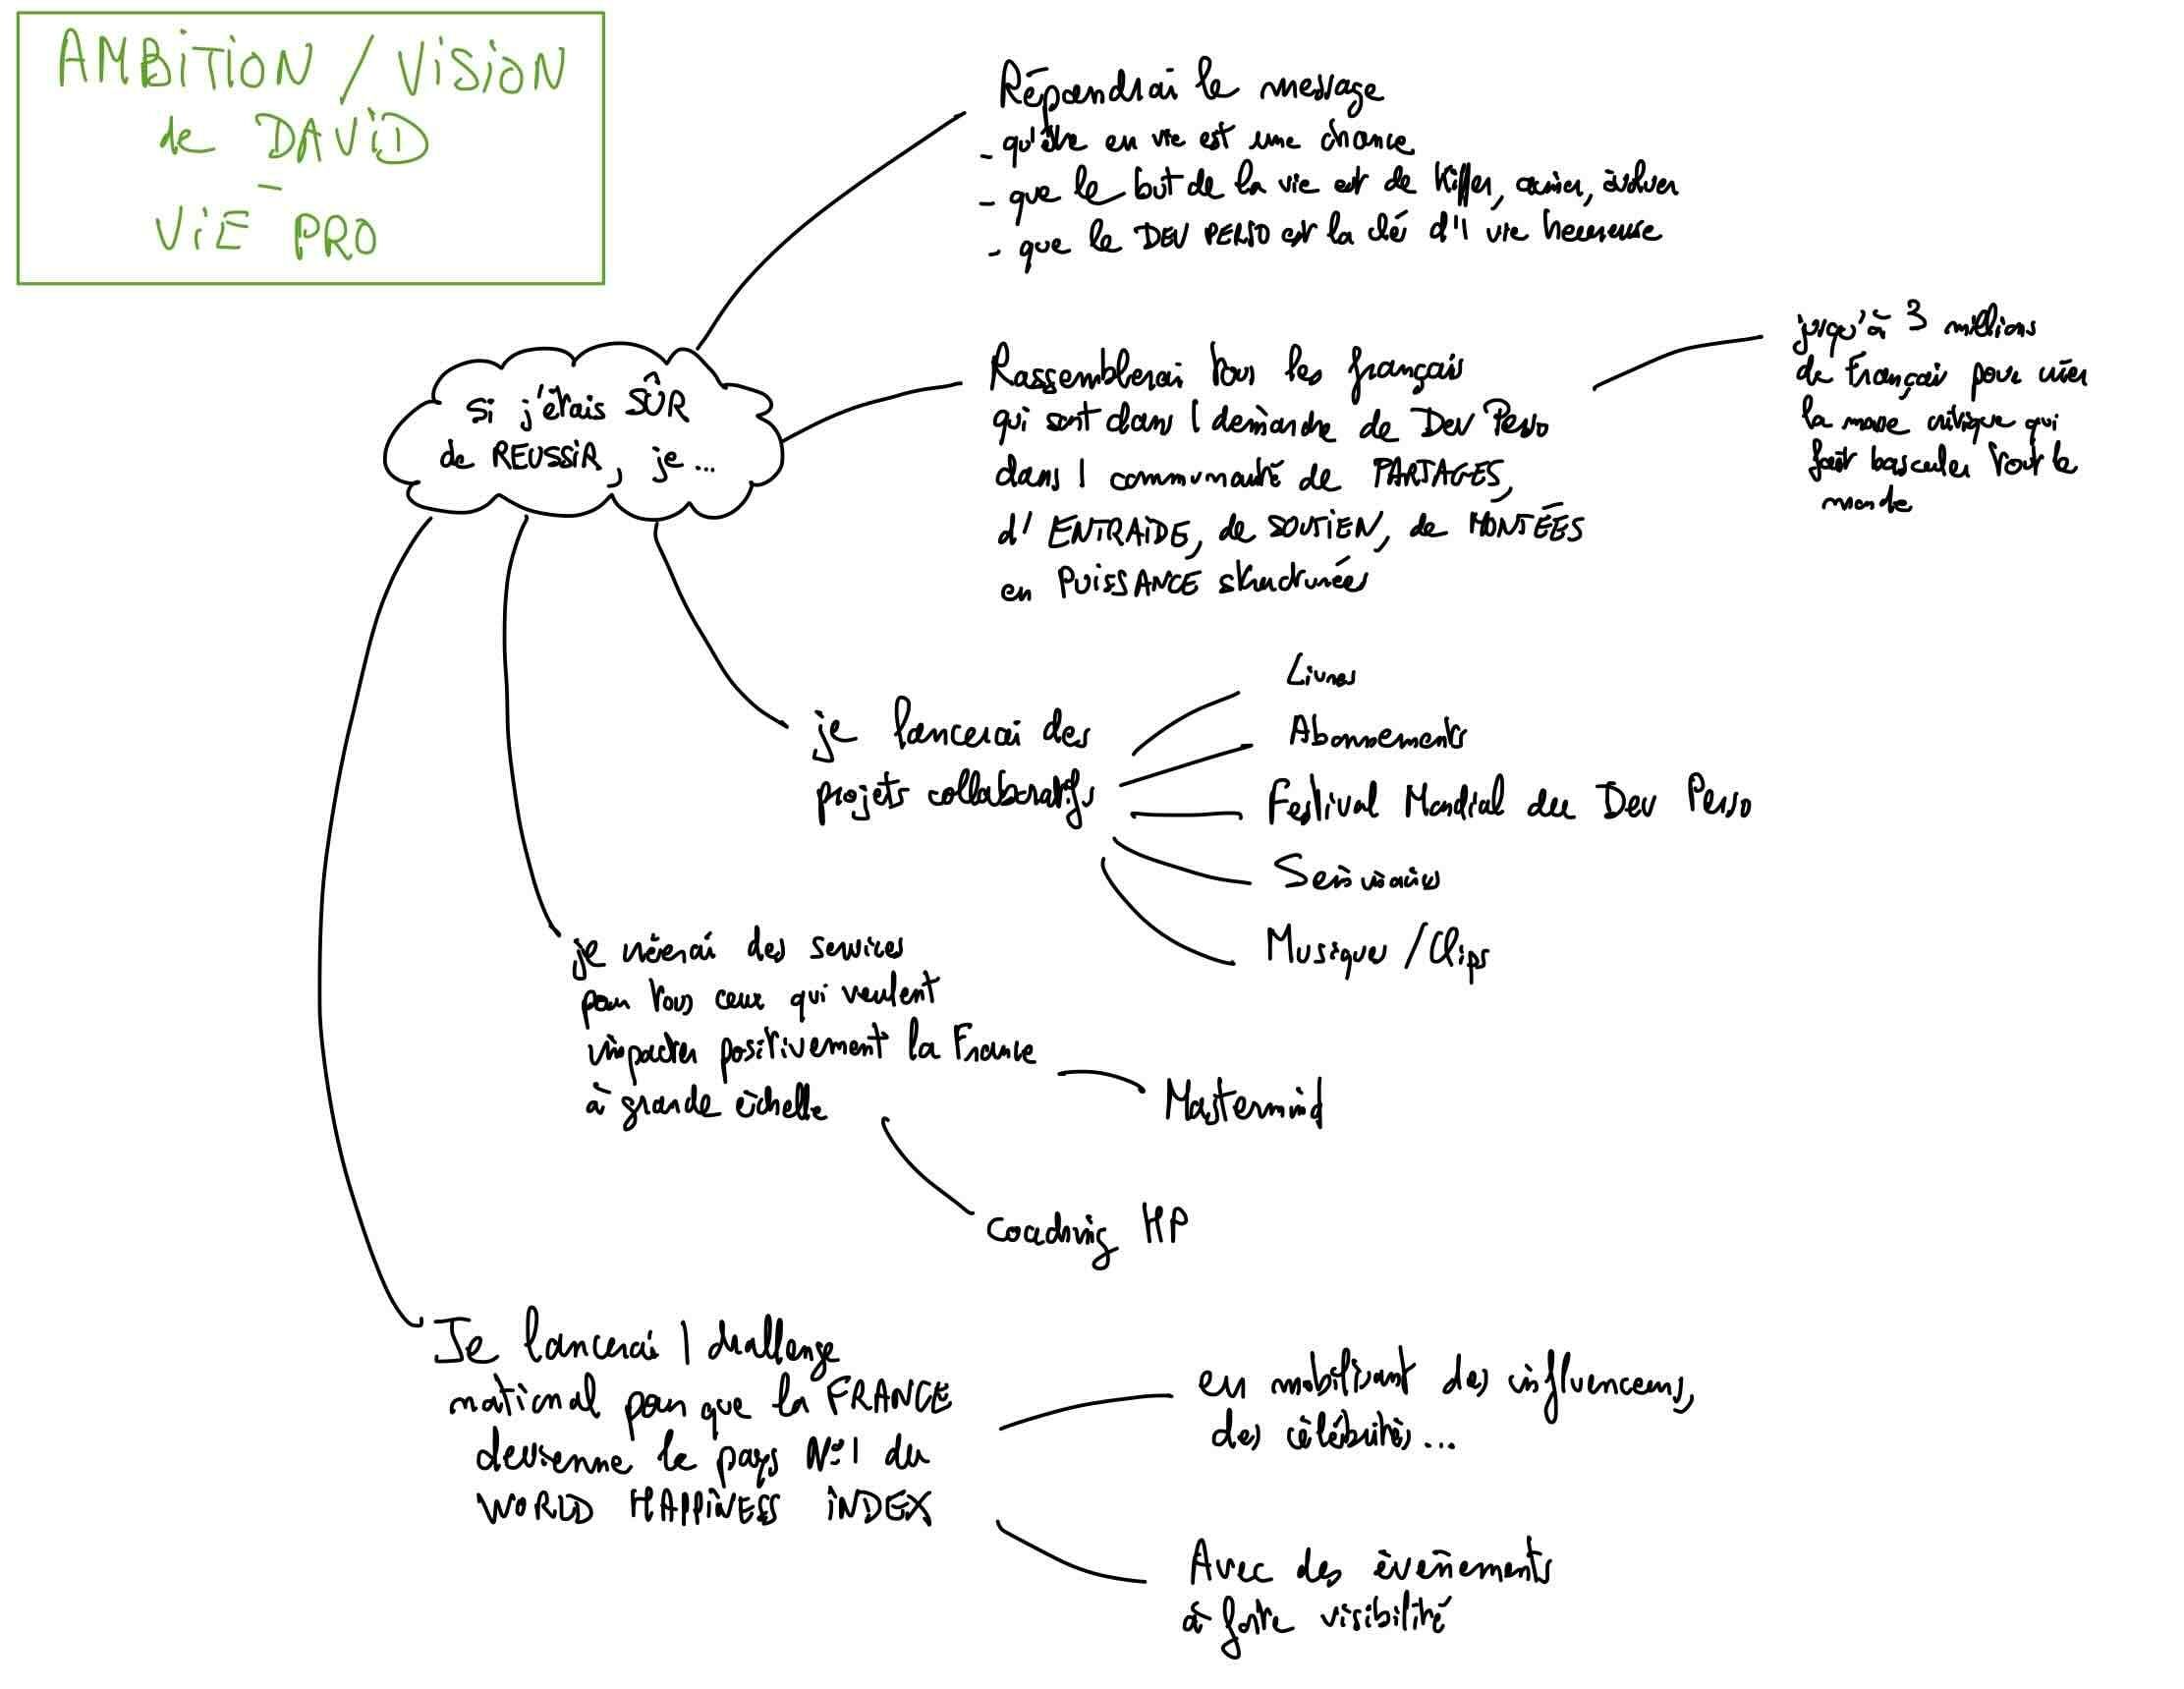 AMBITION / VISION
de DAVID
-
VIE PRO
si j'étais SÛR
de REUSSIR, je ...
Répandrai le message
- qu'être en vie est une chance
- que le but de la vie est de kiffer, aimer, évoluer
- que le DEV PERSO est la clé d'1 vie heureuse
Rassemblerai tous les français
qui sont dans 1 démarche de Dev Perso
dans 1 communauté de PARTAGES,
d'ENTRAIDE, de SOUTIEN, de MONTÉES
en PUISSANCE structurées
jusqu'à 3 millions
de Français pour créer
la masse critique qui
fait basculer tout le
monde
je lancerai des
projets collaboratifs
Livres
Abonnements
Festival Mondial du Dev Perso
Séminaires
Musiques / Clips
je créerai des services
pour tous ceux qui veulent
impacter positivement la France
à grande échelle
Mastermind
Coaching HP
Je lancerai 1 challenge
national pour que la FRANCE
devienne le pays N°1 du
WORLD HAPPINESS INDEX
en mobilisant des influenceurs,
des célébrités ...
Avec des évènements
à forte visibilité